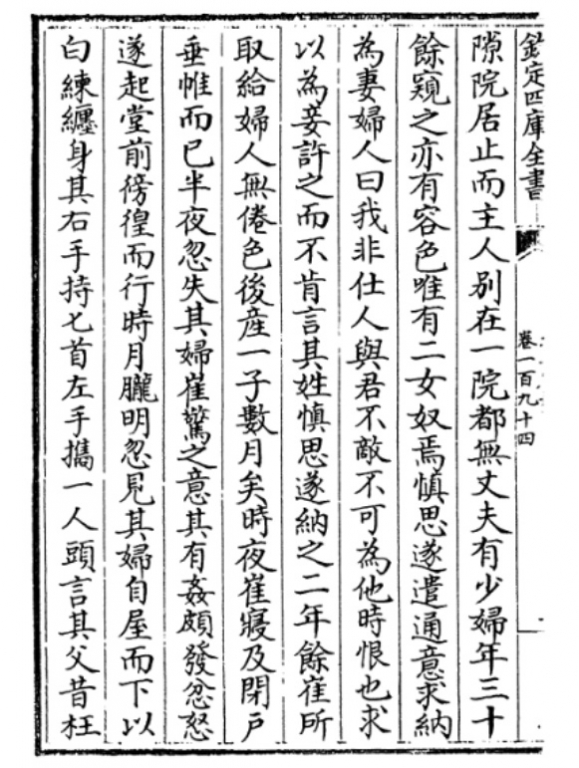 欽定四庫全書
卷一百九十四
隙院居止而主人别在一院都無丈夫有少婦年三十
餘窺之亦有容色唯有二女奴焉慎思遂遣通意求納
為妻婦人曰我非仕人與君不敵不可為他時恨也求
以為妾許之而不肯言其姓慎思遂納之二年餘崔所
取給婦人無倦色後産一子數月矣時夜崔寢及閉户
垂帷而已半夜忽失其婦崔驚之意其有姦頗發忿怒
遂起堂前徬徨而行時月朧明忽見其婦自屋而下以
白練纏身其右手持匕首左手攜一人頭言其父昔枉